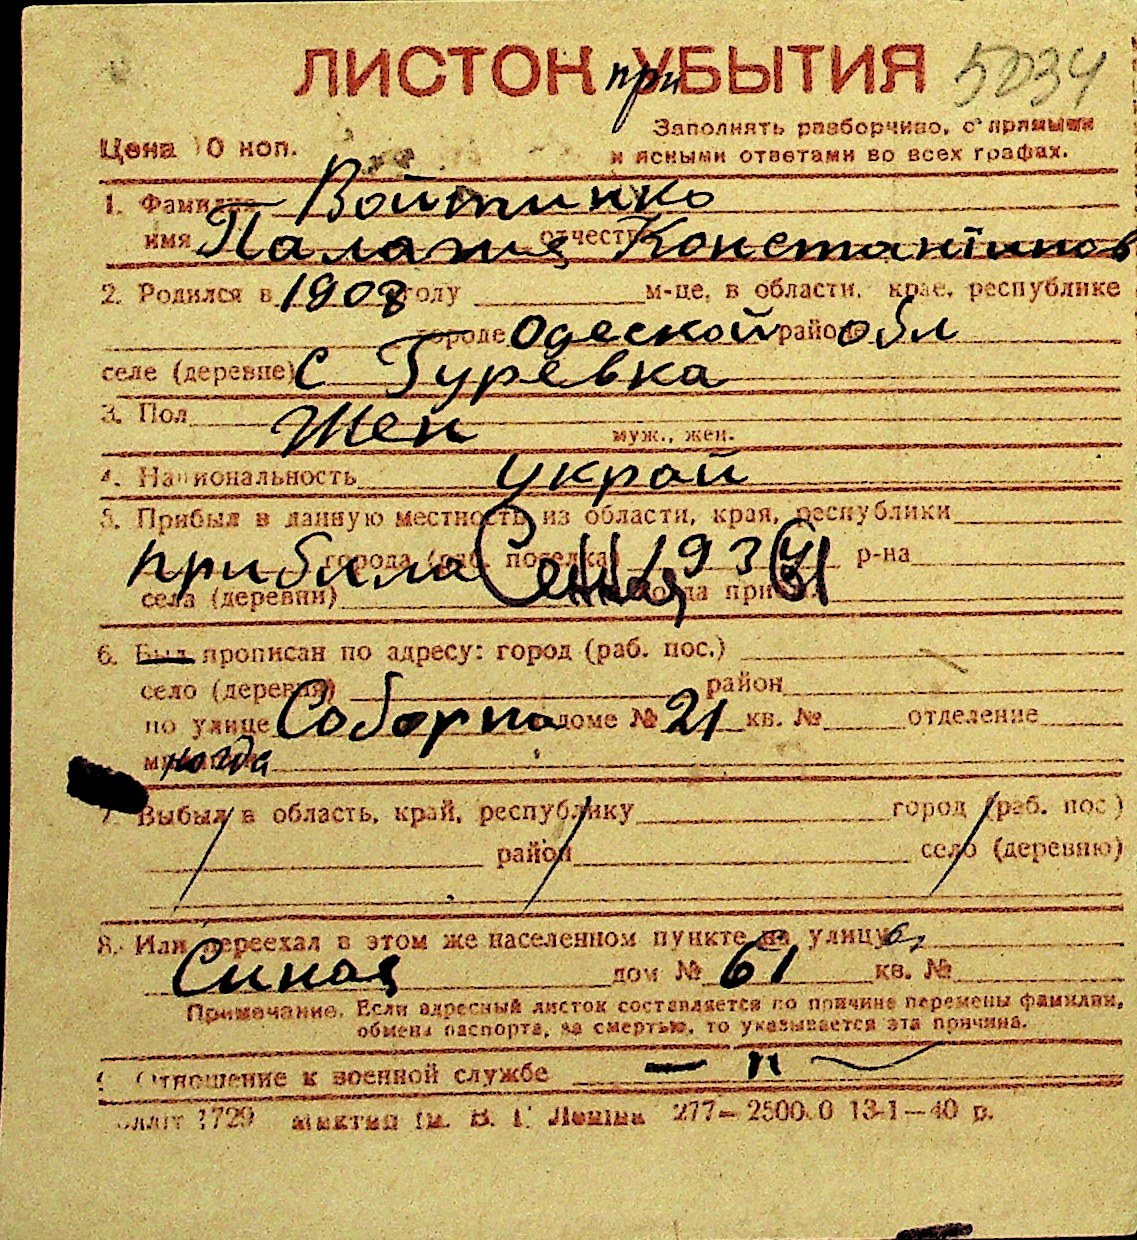 ЛИСТОК при УБЫТИЯ 5034
Цена 10 коп. Заполнять разборчиво, с прямыми
и ясными ответами во всех графах.
1. Фамилия Войтинко
имя Палажия отчество Константинов
2. Родился в 1908 году м-це, в области, крае, республике
городе Одеской районе обл
селе (деревне) с Гуревка
3. Пол Жен муж., жен.
4. Национальность украй
5. Прибыл в данную местность из области, края, республики
прибила города (раб. поселка) 193 р-на
села (деревни) Сенная 61
6. Был прописан по адресу: город (раб. пос.)
село (деревня) район
по улице Соборна доме № 21 кв. № отделение
когда
7. Выбыл в область, край, республику город (раб. пос.)
район село (деревню)
8. Или переехал в этом же населенном пункте на улицу
Синая дом № 61 кв. №
Примечание. Если адресный листок составляется по причине перемены фамилии,
обмена паспорта, за смертью, то указывается эта причина.
Отношение к военной службе — н
1729 Ленина 277— 13-1—40 р.